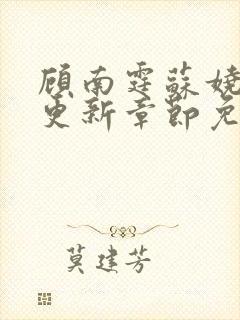 顾南霆苏娆
更新章节免
莫建芳